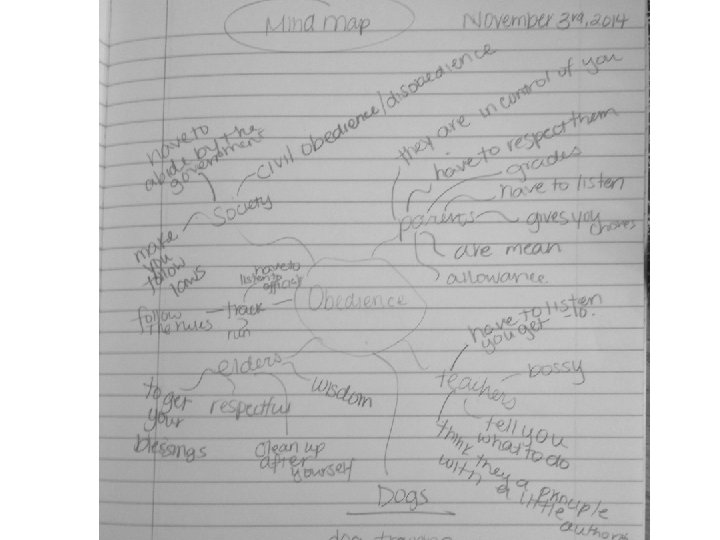 Mind map
November 3rd, 2014
have to
abide by the
government
civil obedience/disobedience
Society
make
you
follow
laws
they are in control of you
have to respect them
grades
have to listen
parents
gives you
chores
are mean
allowance
Obedience
have to
listen to
track
follow
the rules
run
elders
to get
your
blessings
respectful
wisdom
clean up
after
yourself
have to listen
you get to.
teachers
bossy
tell you
what to do
think they a principle
with a little
Dogs
dog training